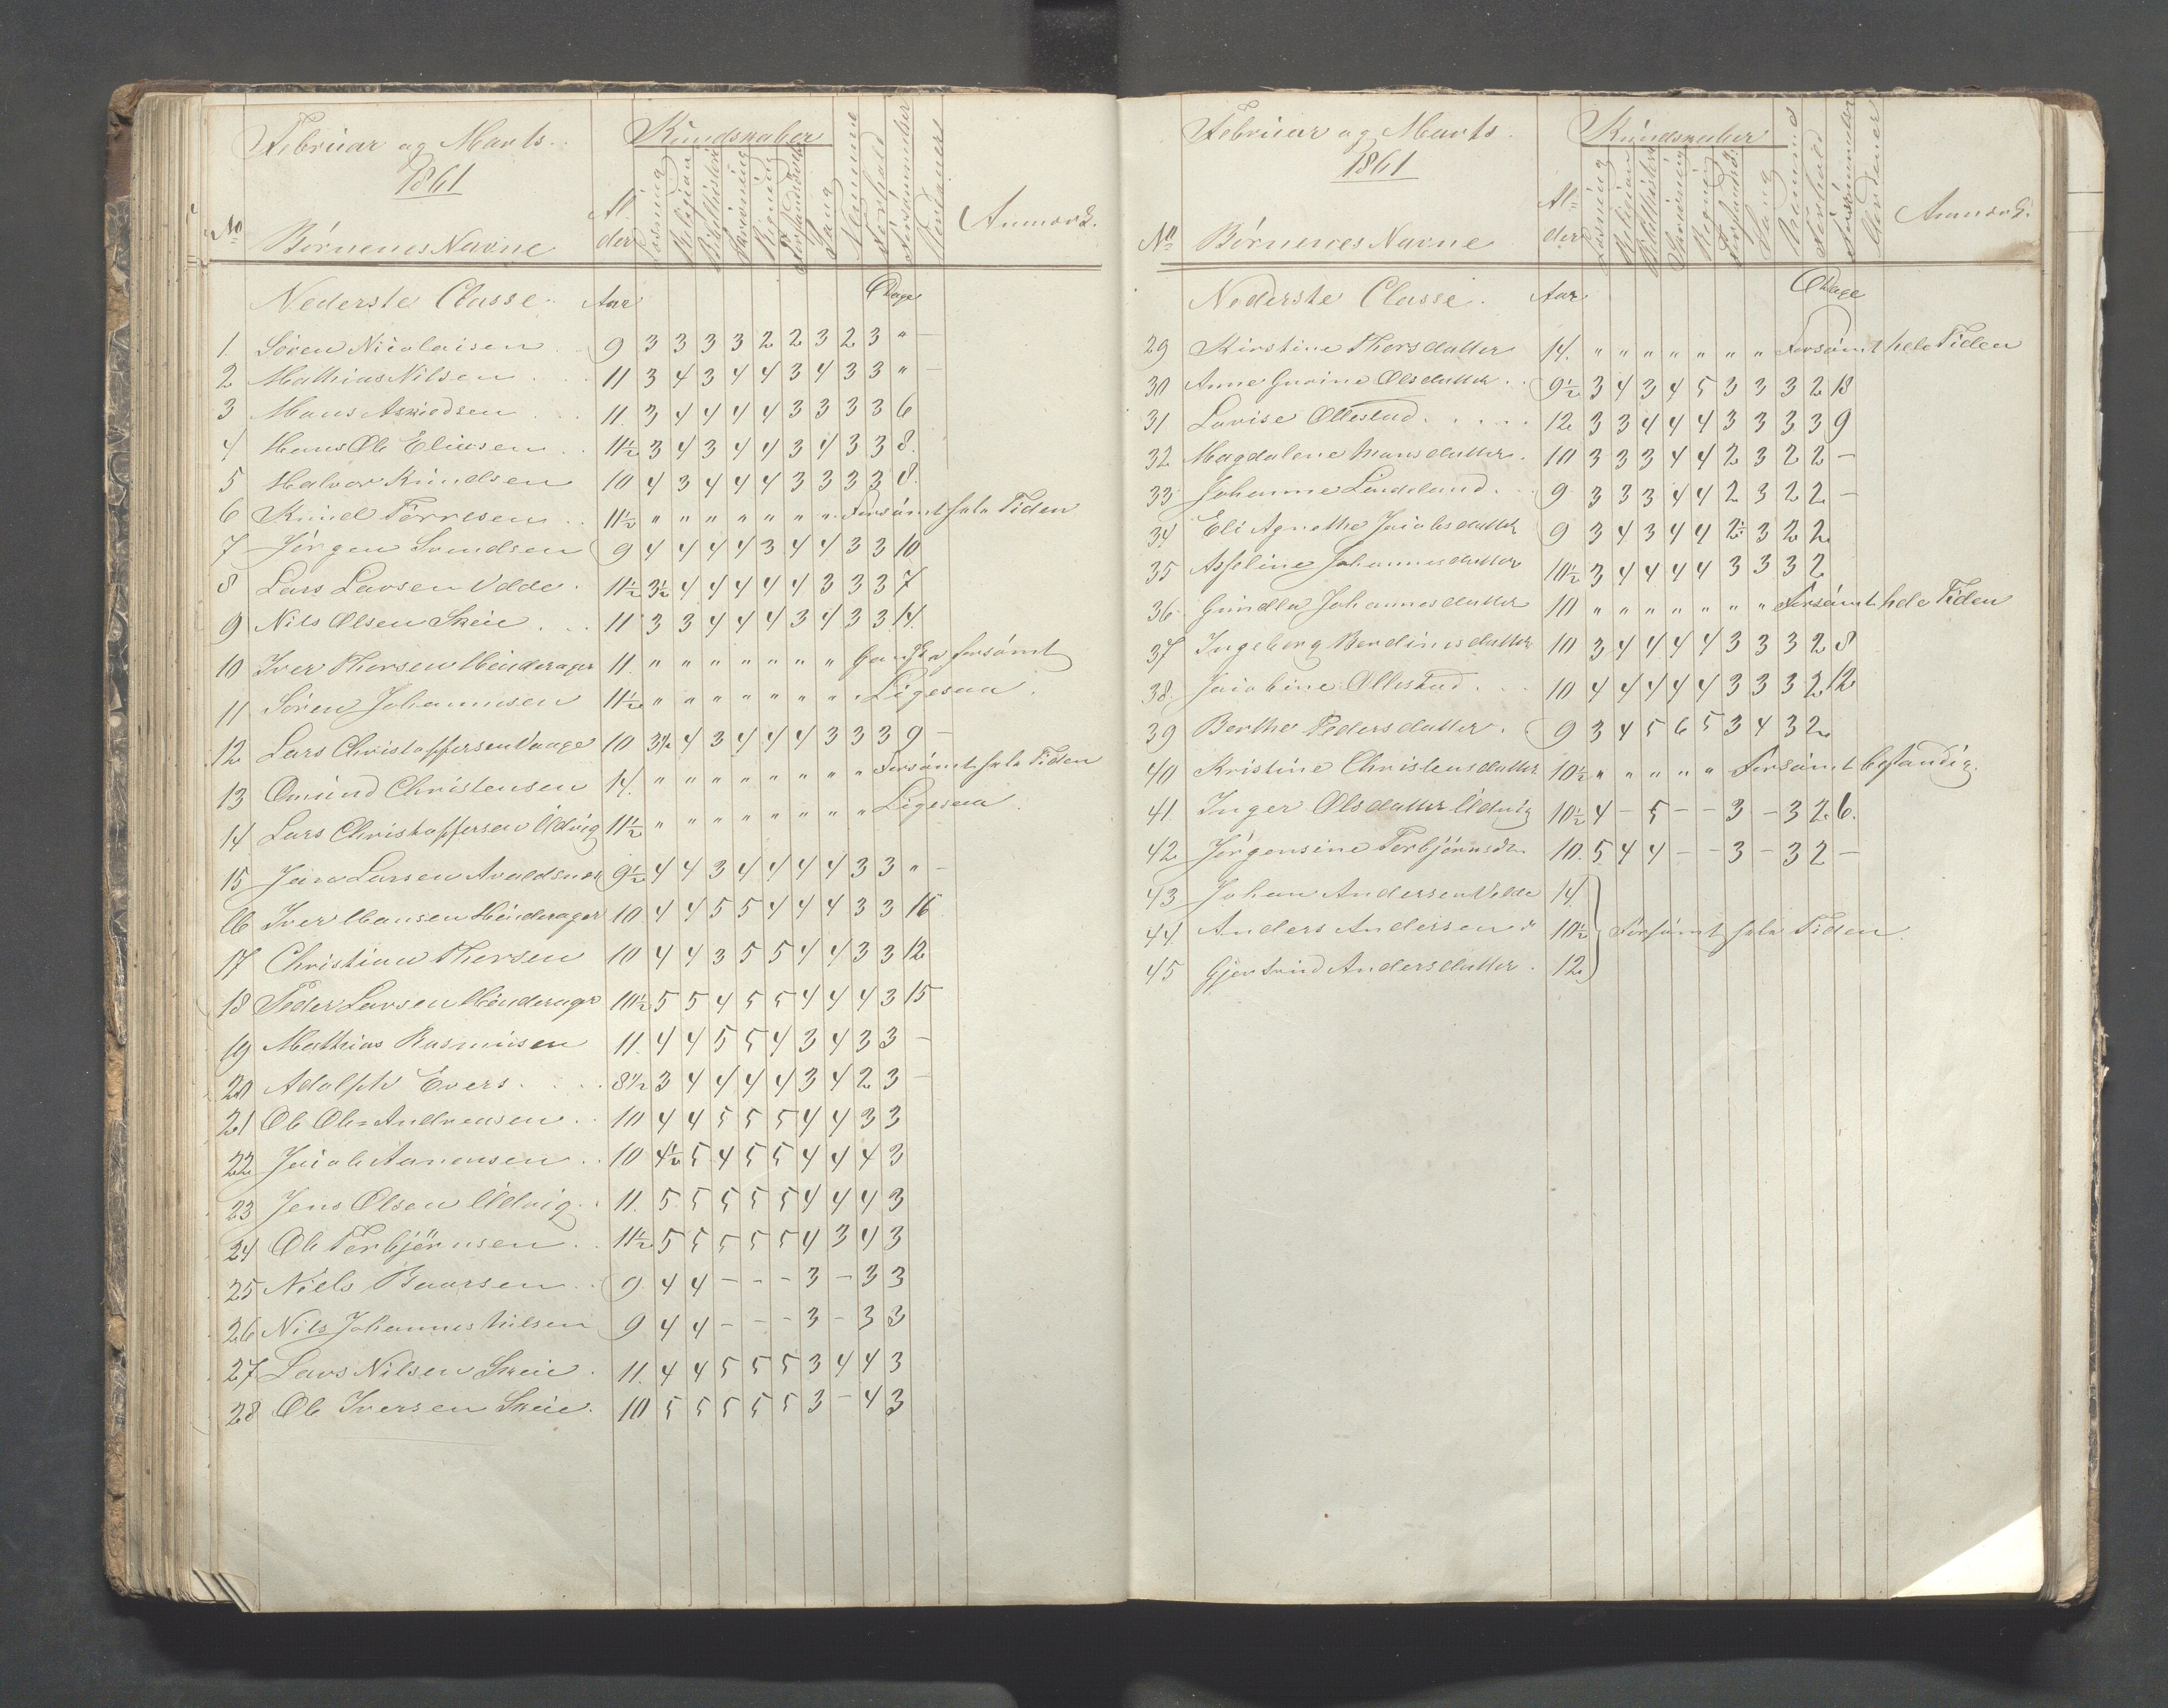 Februar og Marts.
1861
Kundskaber
No Børnenes Navne Alder Læsning Religion Bibelhistorie Skrivning Regning Forstandsøv. Sang Nemme Forhold Forsømmelser Anmærk.
Nederste Classe. Aar Dage
1. Sören Nicolaisen 9 3 3 3 3 2 2 3 2 3 " —
2 Mathias Nilsen 11 3 4 3 4 4 3 4 3 3 " —
3 Mons Asriedsen 11. 3 4 4 4 4 3 3 3 3 6
4 Hans Ole Eliasen 11½ 3 4 3 4 4 3 4 3 3 8.
5 Halvor Knudsen 10 4 3 4 4 4 3 3 3 3 8.
6 Knud Torresen 11½ " " " " " " " Forsömt hele Tiden
7 Jörgen Svendsen 9 4 4 4 4 3 4 4 3 3 10
8 Lars Larsen Velde. 11½ 3½ 4 4 4 4 4 3 3 3 7
9 Nils Olsen Skeie 11 3 3 4 4 4 3 4 3 3 14.
10 Iver Thorsen Hinderager 11. " " " " " " " Ganske forsömt
11 Sören Johannesen 11½ " " " " " " " Ligesaa.
12 Lars Christoffersen Vaage 10 3½ 4 3 4 4 4 3 3 3 9 —
13 Omund Christensen 14. " " " " " " " " Forsömt hele Tiden
14 Lars Christoffersen Udvig 11½ " " " " " " " " Ligesaa.
15 Jens Larsen Avaldsnes 9½ 4 4 3 4 4 4 4 3 3 " —
16 Iver Hansen Hinderager 10 4 4 5 5 4 4 4 3 3 16
17 Christian Thorsen 10 4 4 3 5 5 4 4 3 3 12
18 Peder Larsen Hinderager 10½ 5 5 4 5 5 4 4 4 3 15
19 Mathias Rasmusen 11. 4 4 5 5 4 3 4 3 3 —
20 Adolph Evers 8½ 3 4 4 4 4 3 4 2 3 —
21 Ole Ole Andreasen 10 4 4 5 5 5 4 4 3 3
22 Jacob Aanensen 10 4½ 5 4 5 5 4 4 4 3
23 Jens Olsen Udvig 11. 5 5 5 5 5 4 4 4 3
24 Ole Torbjörnsen 11½ 5 5 5 5 5 4 3 4 3
25 Niels Baarsen 9 4 4 — — — 3 — 3 3
26 Nils Johannes Nilsen 9 4 4 — — — 3 — 3 3
27 Lars Nilsen Skeie. 11. 4 4 5 5 5 3 4 4 3
28 Ole Iversen Skeie. 10 5 5 5 5 5 3 — 4 3
Februar og Marts.
1861
Kundskaber
No Børnenes Navne Alder Læsning Religion Bibelhistorie Skrivning Regning Forstandsøv. Sang Nemme Forhold Forsømmelser Anmærk.
Nederste Classe. Aar Dage
29 Kirstine Thorsdatter 14. " " " " " " " Forsömt hele Tiden
30 Anne Gurine Olsdatter 9½ 3 4 3 4 5 3 3 3 2 18
31 Lovise Ollestad 12 3 3 4 4 4 3 3 3 3 9
32 Magdalene Monsdatter. 10 3 3 3 4 4 2 3 2 2 —
33 Johanne Lindeland. 9 3 3 3 4 4 2 3 2 2 —
34 Eli Agnethe Jacobsdatter 9 3 4 3 4 4 2½ 3 2 2
35 Asseline Johannesdatter 10½ 3 4 4 4 4 3 3 3 2
36 Gundla Johannesdatter 10 " " " " " " " Forsömt hele Tiden
37 Ingeborg Berdinesdatter 10 3 4 4 4 4 3 3 3 2 8
38. Jacobine Ollestad 10 4 4 4 4 4 3 3 3 2 12
39 Berthe Pedersdatter. 9 3 4 5 6 5 3 4 3 2
40 Kristine Christensdatter 10½ " " " " " Forsömt bestandig.
41 Inger Olsdatter Udvig 10½ 4 — 5 — — 3 — 3 2 6.
42 Jörgensine Torbjörnsdr 10. 5 4 4 — — 3 — 3 2 —
43 Johan Andersen Velde 14
44 Anders Andersen " 10½ Forsömt hele Tiden.
45 Gjertrud Andersdatter. 12